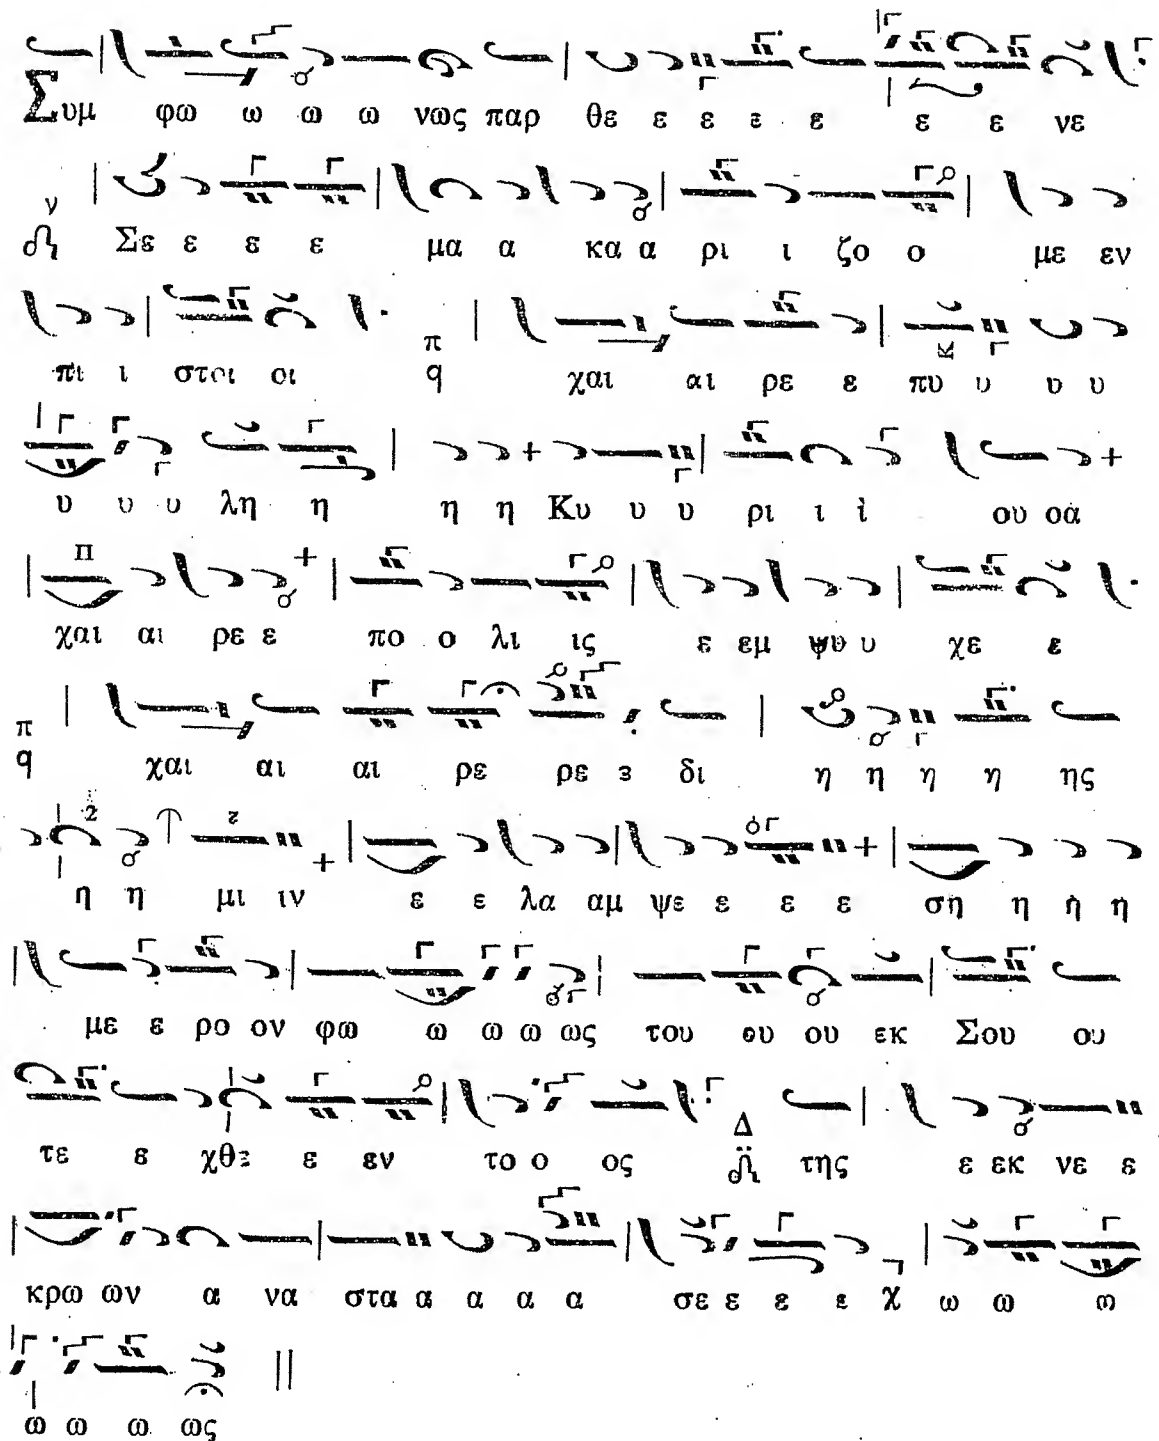 Συμ φω ω ω ω νως παρ θε ε ε ε ε ε ε νε
Σε ε ε ε μα α κα α ρι ι ζο ο με εν
πι ι στοι οι χαι αι ρε ε πυ υ υ υ
υ υ υ λη η η η Κυ υ υ ρι ι ι ου οα
χαι αι ρε ε πο ο λι ις ε εμ ψυ υ χε ε
χαι αι αι ρε ρε ε δι η η η η ης
η η μι ιν ε ε λα αμ ψε ε ε ε ση η η η
με ε ρο ον φω ω ω ω ως του ου ου εκ Σου ου
τε ε χθε ε εν το ο ος της ε εκ νε ε
κρω ων α να στα α α α α σε ε ε ε χ ω ω ω
ω ω ω ως